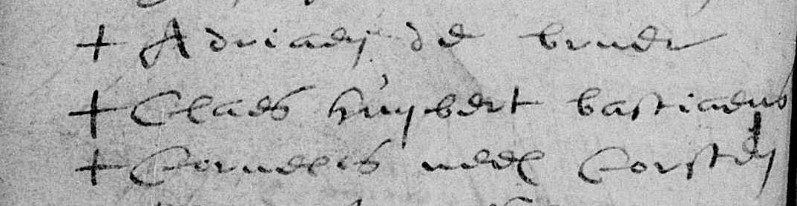 + Adriaen de bruder
+ Claes huybert bastiaens
+ Cornelis neel Corsten